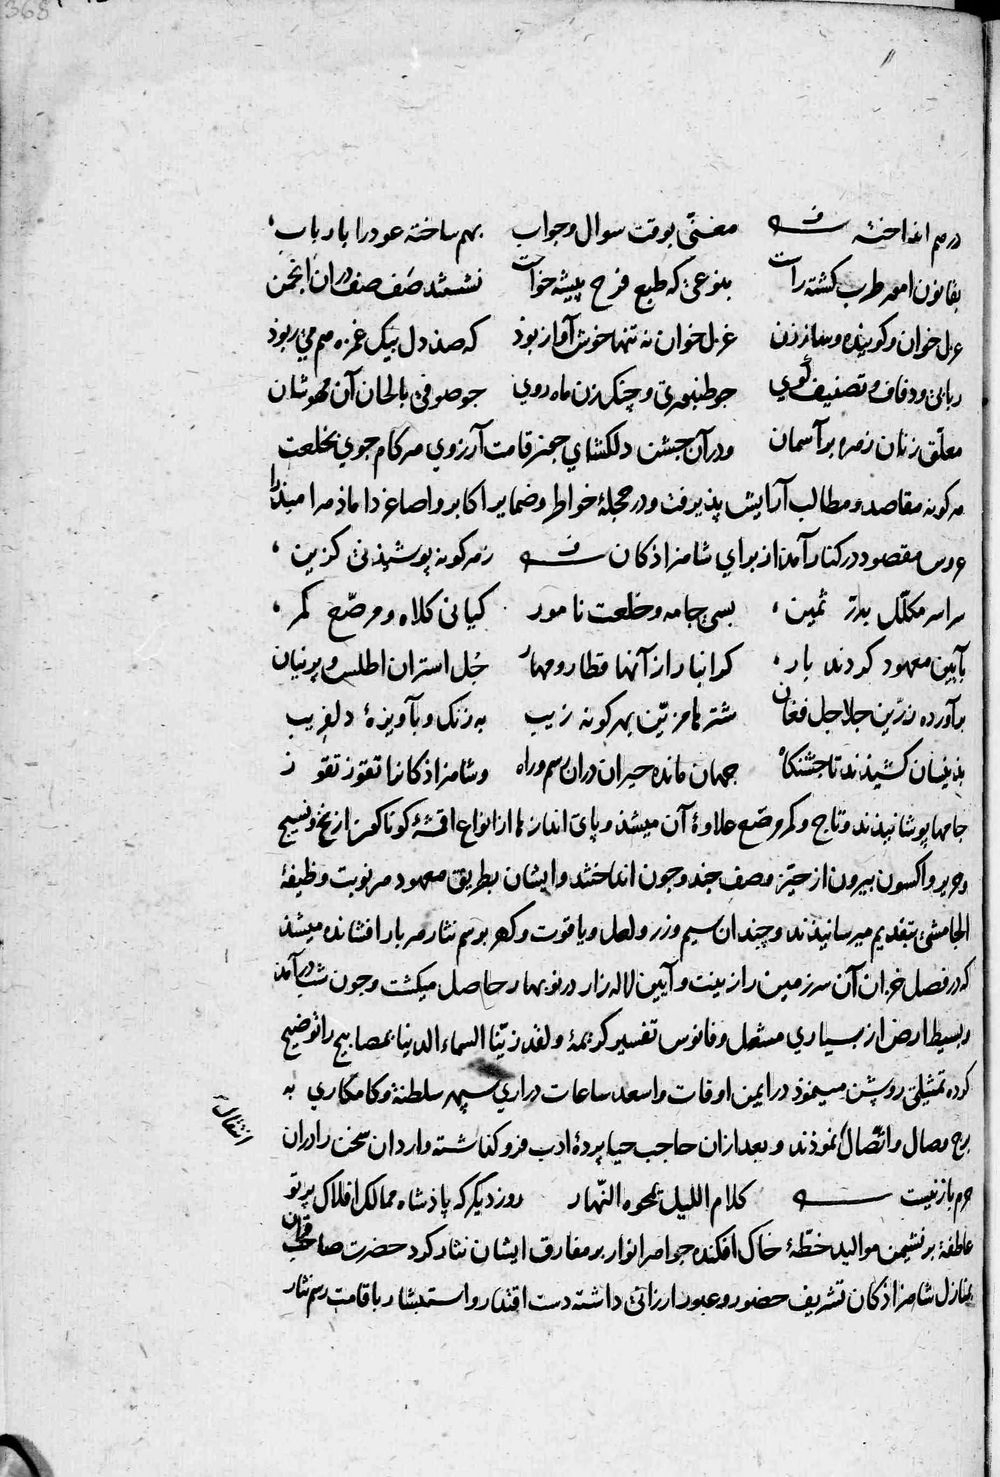 368
درهم انداخته  مغنّی بوقت سوال و جواب  بهم ساخته عود را با رباب
بقانون طرب کشته راست  بنوعی که طبع فرح پیشه خواست  نشستند صف صف دران انجمن
غزل خوان و کوینده و ساز زن  غزل خوان نه تنها خوش آواز بود  که صد دل بیک غمزه هم می ربود
ربابی و دفاف و تصنیف کوی  چو طنبوری و چنک زن ماه روی  چو صوفی بالحان آن مهوشان
معلّق زنان زهره بر آسمان  و در آن جشن دلکشای قامت آرزوی هر کام جوی بخلعت
هر کونه مقاصد و مطالب آرایش پذیرفت و در حجلهٔ خواطر و ضمایر اکابر و اصاغر داماد مراد را
عروس مقصود در کنار آمد از برای شاهزاذکان  ز هر کونه پوشیدنی کزین
سراسر مکلّل بدرّ ثمین  بسی جامه و خلعت نامور  کیانی کلاه و مرصّع کمر
بآیین معهود کردند بار  کرانبار از آنها قطار و مهار  جُل استران اطلس و پرنیان
برآورده زرّین جلاجل فغان  شترها مزیّن بهر کونه زیب  به زنک و بآویزهٔ دلفریب
بذینسان کشیذند تا جشنکاه  جهان مانده حیران دران رسم و راه  و شاهزاذکانرا تقوز تقوز
جامها پوشانیذند و تاج و کمر مرصّع علاوهٔ آن میشذ و پای اندازها از انواع اقمشهٔ کوناکون از نخ و نسیج
و حریر و اکسون بیرون از حیّز وصف چند و چون انداختند و ایشان بطریق معهود هر نوبت وظیفهٔ
الجامشی بتقدیم میرسانیذند و چندان سیم و زر و لعل و یاقوت و کهر برسم نثار هر بار افشانده میشذ
که در فصل خزان آن سرزمین را زینت و آیین لاله زار در نوبهار حاصل میکشت و چون شب درآمد
و بسیط ارض از بسیاری مشعل و فانوس تفسیر کریمهٔ و لقد زیّنا السماء الدنیا بمصابیح را توضیح
کرده تمثیلی روشن مینموذ در ایمن اوقات و اسعد ساعات دراری سپهر سلطنة و کامکاری به
برج وصال و اتّصال نموذند و بعد ازان حاجب حیا پردهٔ ادب فرو کذاشته واردان سخن را دران
انتقال
حرم بار نیست  کلام اللیل یمحوه النّهار  روز دیکر که پاذشاه ممالک افلاک پرتو
عاطفة بر نشیمن موالید خطّهٔ خاک افکنده جواهر انوار بر مفارق ایشان نثار کرد حضرت صاحب قران
بمنازل شاهزاذکان تشریف حضور و عبور ارزانی داشته دست اقتدار و استبشار باقامت رسم نثار